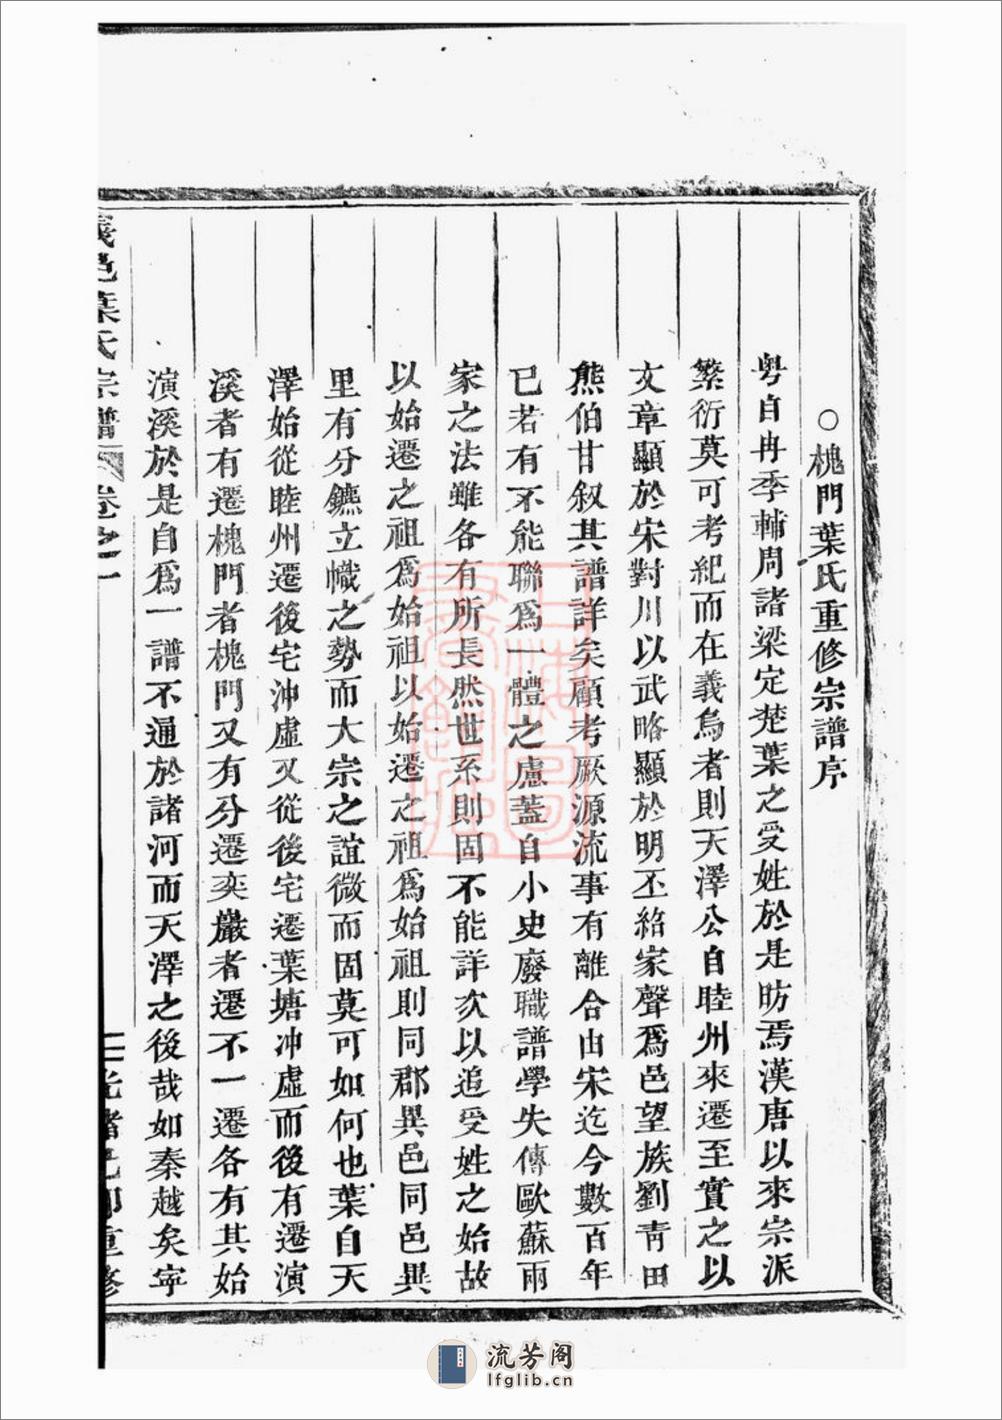 ○槐門葉氏重修宗譜序
粤自冉季輔周諸梁定楚葉之受姓於是昉焉漢唐以來宗派
繁衍莫可考紀而在義烏者則天澤公自睦州來遷至實之以
文章顯於宋對川以武略顯於明丕紹家聲爲邑望族劉青田
熊伯甘叙其譜詳矣顧考厥源流事有離合由宋迄今數百年
已若有不能聯爲一體之慮蓋自小史廢職譜學失傳歐蘇兩
家之法雖各有所長然世系則固不能詳次以追受姓之始故
以始遷之祖爲始祖以始遷之祖爲始祖則同郡異邑同邑異
里有分鑣立幟之勢而大宗之誼微而固莫可如何也葉自天
澤始從睦州遷後宅沖虛又從後宅遷葉塘冲虛而後有遷演
溪者有遷槐門者槐門又有分遷奕巖者遷不一遷各有其始
演溪於是自爲一譜不通於諸河而天澤之後哉如秦越矣寧
義邑葉氏宗譜 卷之一 二 光緒己卯重修
流芳阁
lfglib.cn